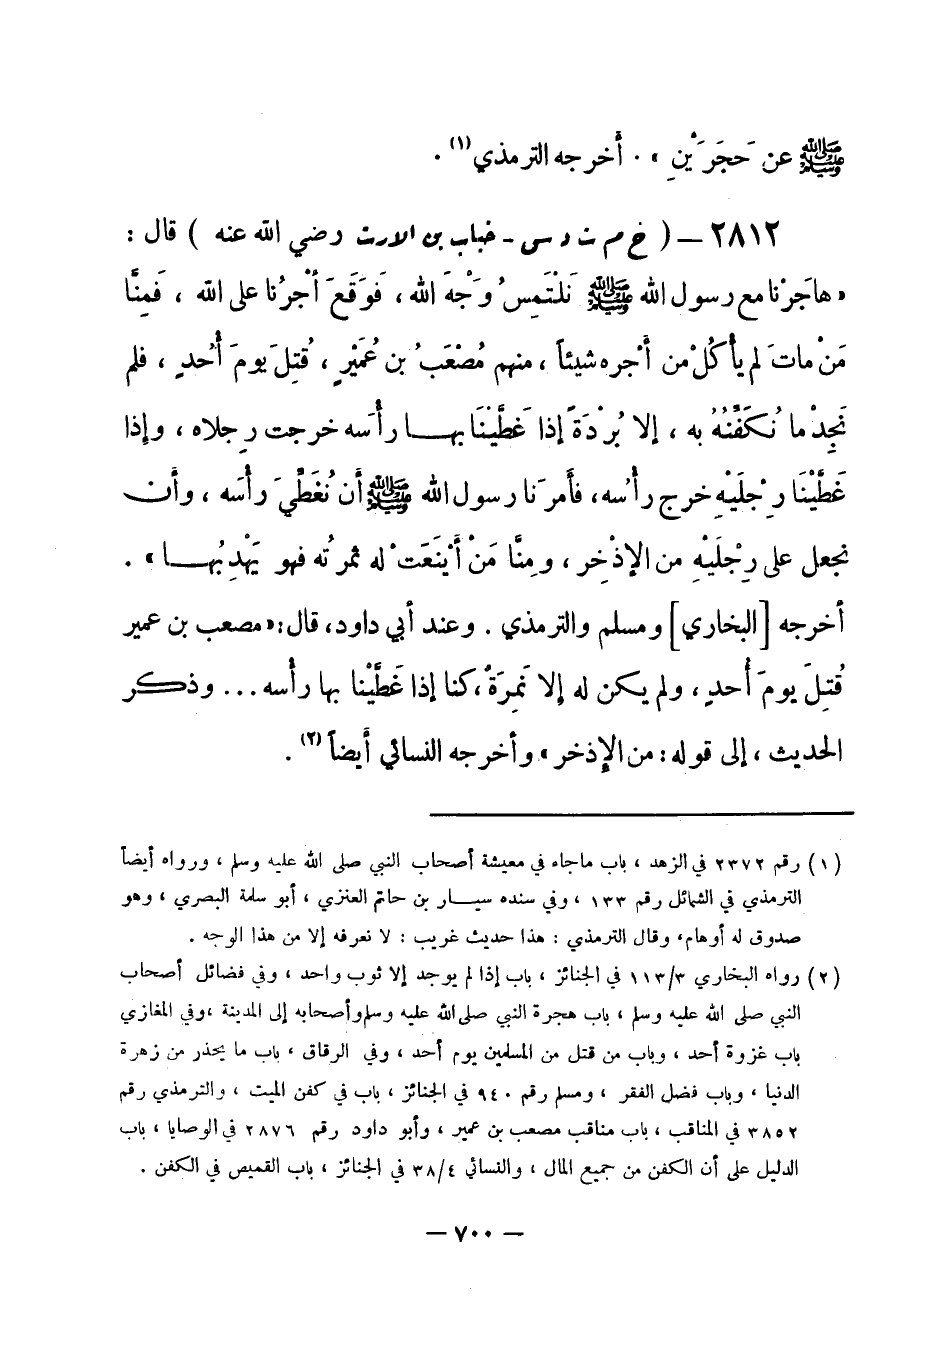 ﷺ عن حَجَرَيْنِ » . أخرجه الترمذي (١) .
٢٨١٢ – ( خ م ت د س - خباب بن الأرت رضي الله عنه ) قال :
« هاجَرْنا مع رسول الله ﷺ نَلْتَمِسُ وَجْهَ الله ، فَوَقَعَ أجْرُنا على الله ، فَمِنَّا
مَنْ ماتَ لم يأكُلْ من أجْره شيئاً ، منهم مُصْعَبُ بن عُمَيْرٍ ، قُتِلَ يومَ أُحدٍ ، فلم
نَجِدْ ما نُكَفِّنُهُ به ، إلا بُرْدَةً إذا غَطَّيْنَا بهـا رأسَه خرجت رِجلاه ، وإذا
غَطَّيْنَا رِجْلَيْهِ خرج رأسُه، فأمرَنا رسول الله ﷺ أن نُغَطِّيَ رأسَه ، وأن
نجعل على رِجْلَيْهِ من الإذْخِر ، ومِنَّا مَنْ أيْنَعَتْ له ثمرتُه فهو يَهْدِبُهـا » .
أخرجه [البخاري] ومسلم والترمذي . وعند أبي داود، قال: « مصعب بن عمير
قُتِلَ يومَ أحدٍ ، ولم يكن له إلا نَمِرَةٌ ، كنا إذا غَطَّيْنا بها رأسه ... وذكر
الحديث ، إلى قوله : من الإذخر » وأخرجه النسائي أيضاً (٢) .
(١) رقم ٢٣٧٢ في الزهد ، باب ماجاء في معيشة أصحاب النبي صلى الله عليه وسلم ، ورواه أيضاً
الترمذي في الشمائل رقم ١٣٣ ، وفي سنده سيـار بن حاتم العنزي ، أبو سلمة البصري ، وهو
صدوق له أوهام، وقال الترمذي : هذا حديث غريب : لا نعرفه إلا من هذا الوجه .
(٢) رواه البخاري ١١٣/٣ في الجنائز ، باب إذا لم يوجد إلا ثوب واحد ، وفي فضائل أصحاب
النبي صلى الله عليه وسلم ، باب هجرة النبي صلى الله عليه وسلم وأصحابه إلى المدينة ، وفي المغازي
باب غزوة أحد ، وباب من قتل من المسلمين يوم أحد ، وفي الرقاق ، باب ما يحذر من زهرة
الدنيا ، وباب فضل الفقر ، ومسلم رقم ٩٤٠ في الجنائز ، باب في كفن الميت ، والترمذي رقم
٣٨٥٢ في المناقب ، باب مناقب مصعب بن عمير ، وأبو داود رقم ٢٨٧٦ في الوصايا ، باب
الدليل على أن الكفن من جميع المال ، والنسائي ٣٨/٤ في الجنائز ، باب القميص في الكفن .
– ٧٠٠ –